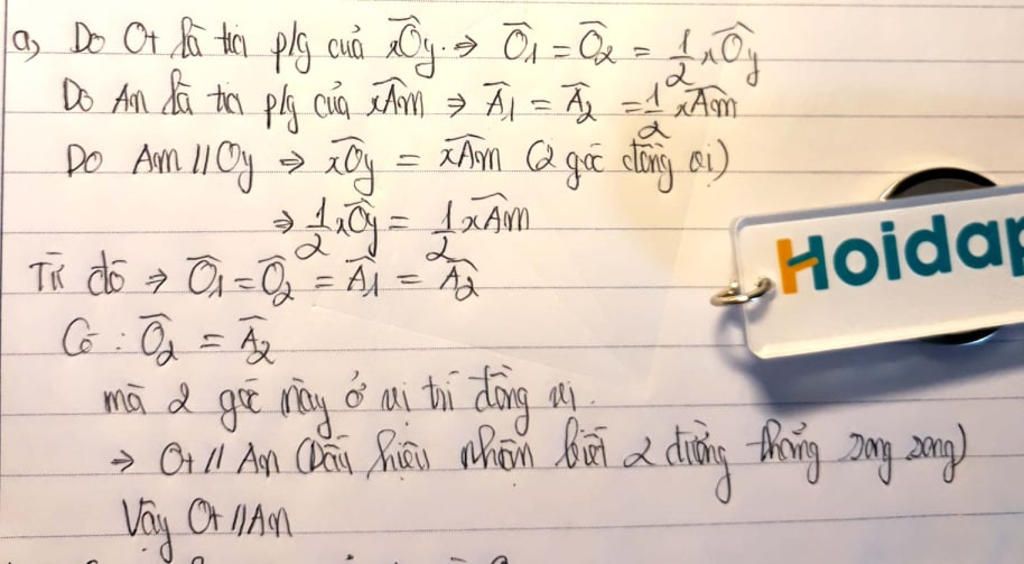 a, Do Ot là tia p/g của xOy. ⇒ O1 = O2 = 1/2 xOy
Do An là tia p/g của xAm ⇒ A1 = A2 = 1/2 xAm
Do Am // Oy ⇒ xOy = xAm (2 góc đồng vị)
⇒ 1/2 xOy = 1/2 xAm
Từ đó ⇒ O1 = O2 = A1 = A2
Có : O2 = A2
mà 2 góc này ở vị trí đồng vị.
⇒ Ot // An (Dấu hiệu nhận biết 2 đường thẳng song song)
Vậy Ot // An
Hoidap